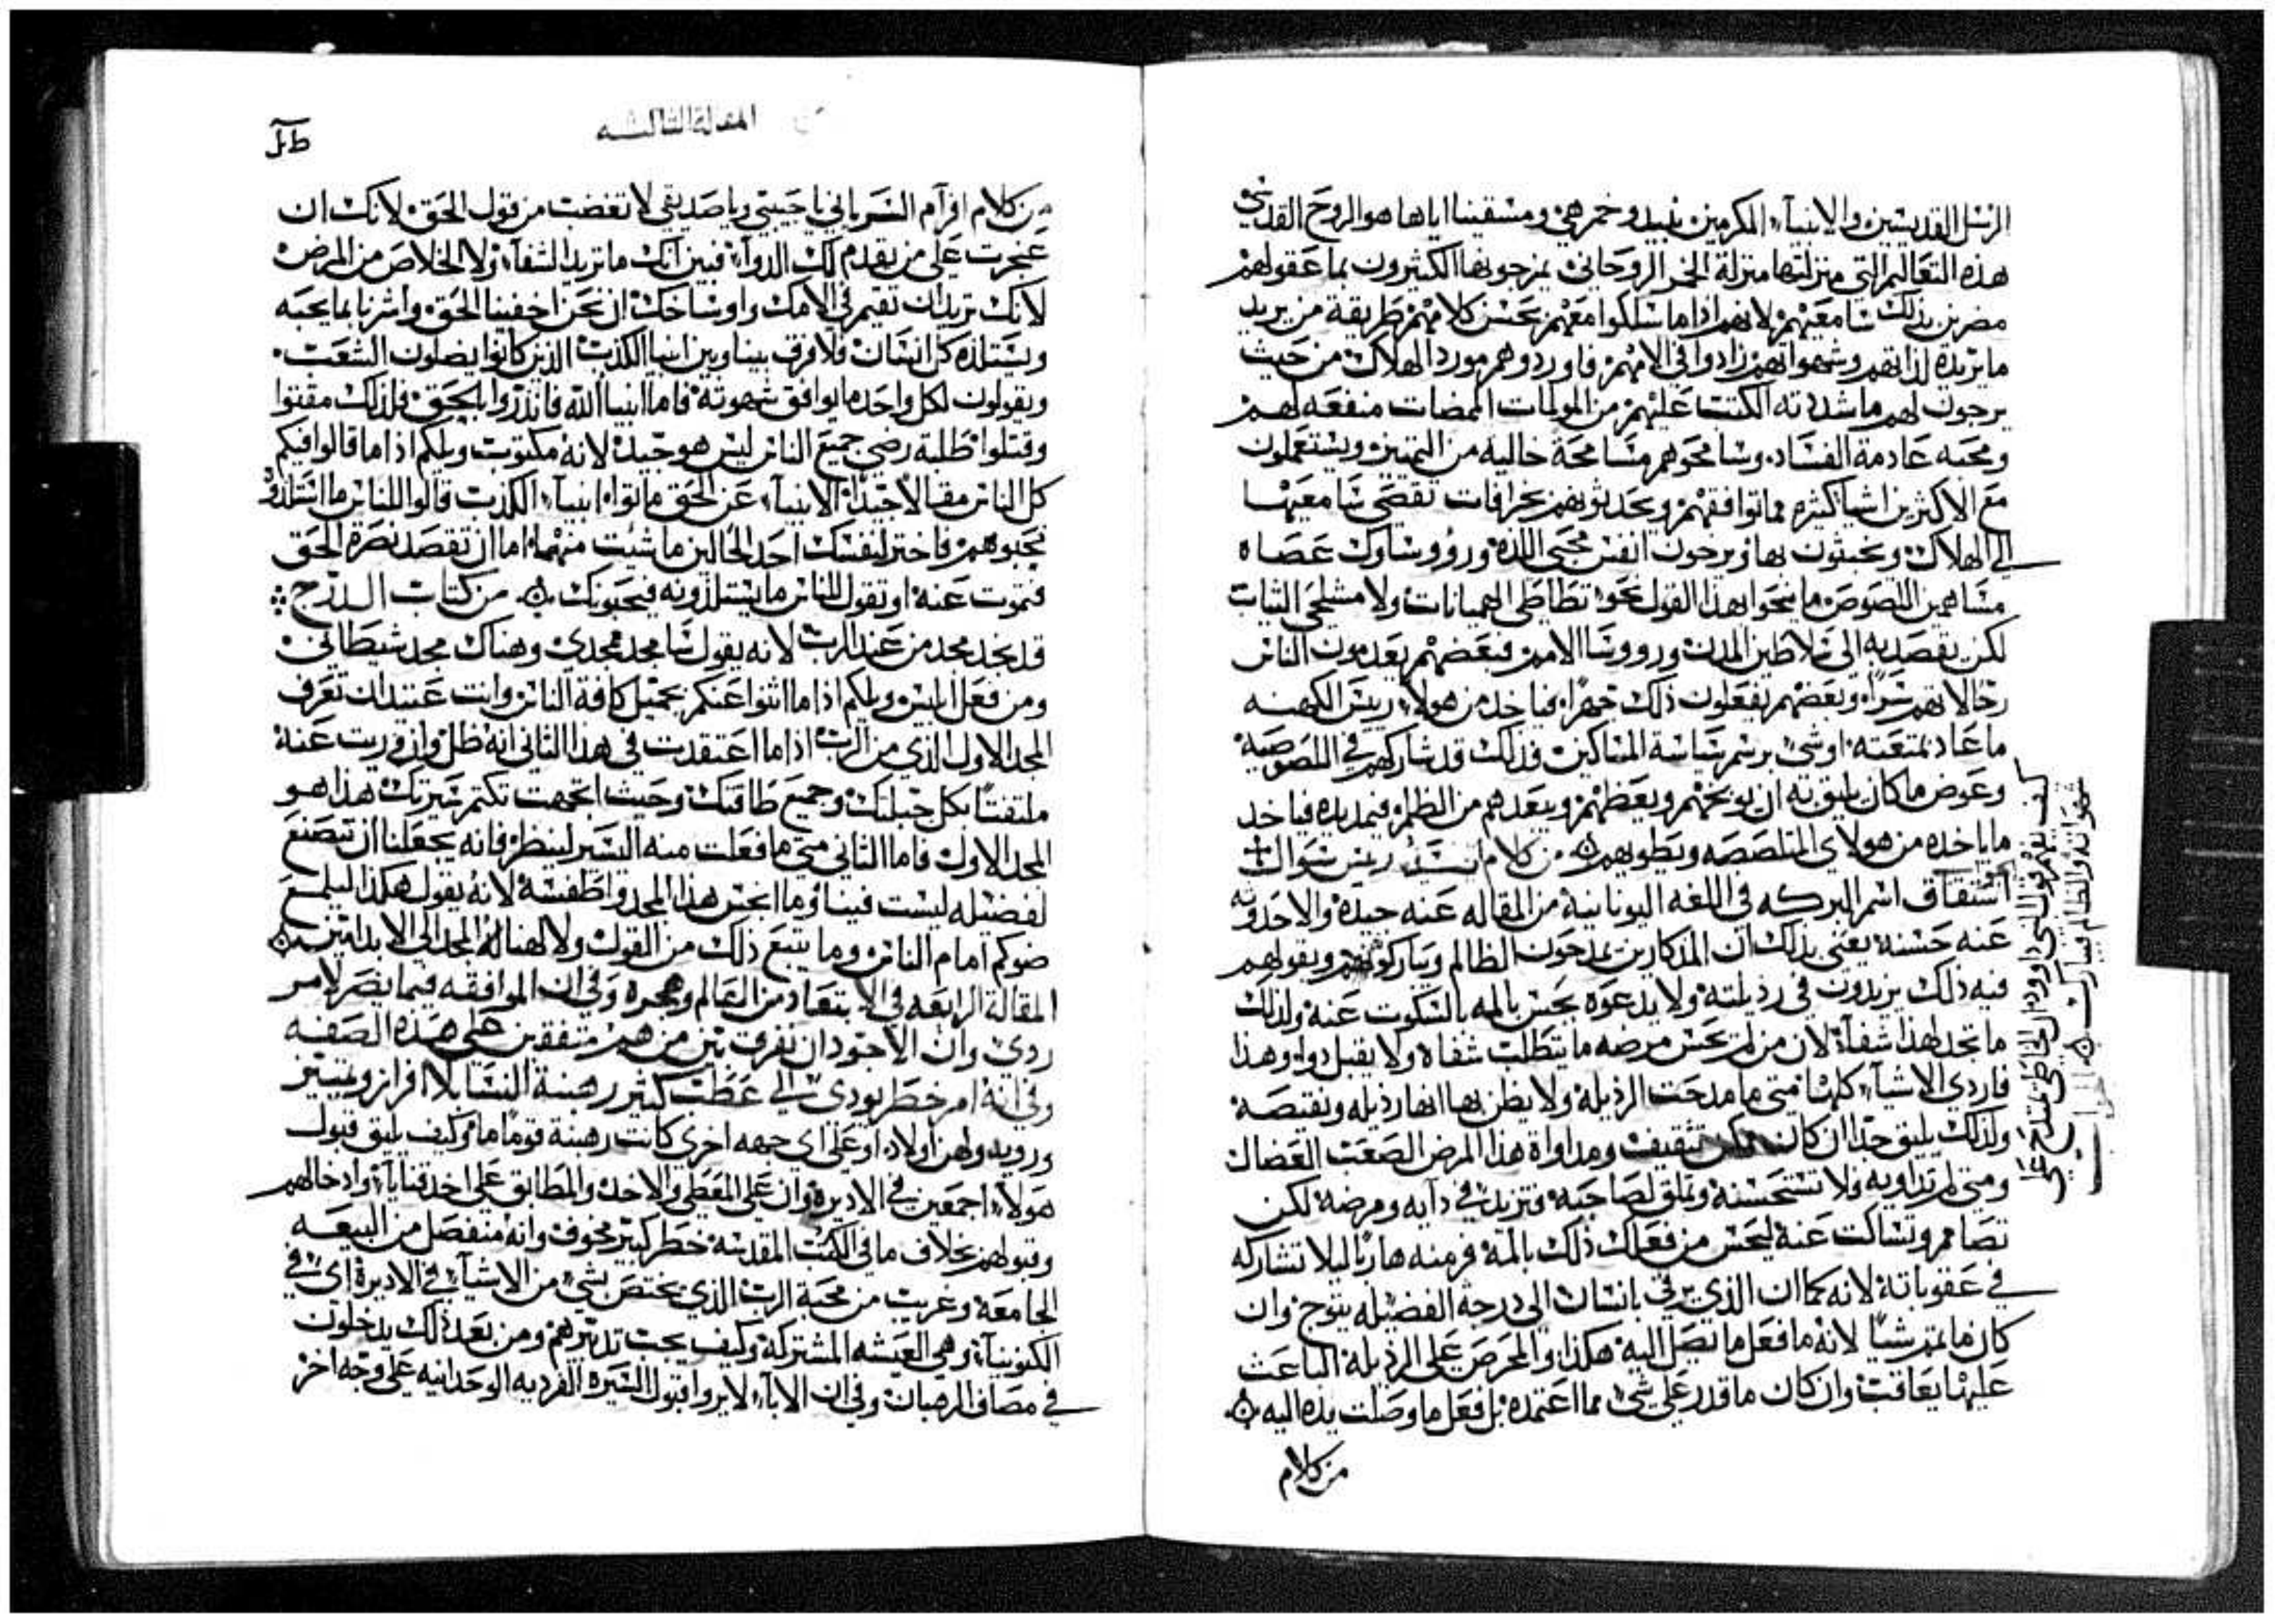 الرسل القديسين والانبياء المكرمين نبيد وخمر هي ومسقينا اياها هو الروح القدس
هذه التعاليم التي منزلتها منزلة الخمر الروحاني يمزجونها الكثيرون بما عقولهم
مضرين بذلك سامعيهم لانهم اذا ما سلكوا معهم بحسن كلامهم طريقة من يريد
ما تريده لذاتهم وشهواتهم زادوا في الامهم فاوردوهم مورد الهلاك من حيث
يرجون لهم ما شددته الكتب عليهم من المولمات الممضات منفعه لهم
ومحبه عادمة الفساد وسامحوهم مسامحة خاليه من التمييز ويستعملون
مع الاكثرين اشيا كثيره مما توافقهم ويحدثونهم بخرافات تفضي سامعيها
الى الهلاك ويخبثون بها ويرخون انفس محبي اللذة ورووسا وك عصاه
مشاهمين اللصوص ما نحوا بهذا القول نحو تطاطي الهميانات ولا مشلحي الثياب
لكن بقصد به الى سلاطين المدن ورووسا الامم فبعضهم يعدمون الناس
رحالاتهم سرا وبعضهم يفعلون ذلك جهرا فياخد من هولاء ريس الكهنه
ما عاد بمتعته او شي برسم سياسة المساكين فذلك قد شاركهم في اللصوصيه
وعوض ما كان يليق به ان يوبخهم ويعظهم ويبعدهم من الظلم فيمد يده فياخد
ما ياخده من هولاي المتلصصه ويطوبهم من كلام ريس سوال
اشتقاق اسم البركه في اللغه اليونانية من المقاله عنه جيده والاحدوثه
عنه حسنه يعني بذلك ان المذكارين يمدحون الظالم ويباركونهم وبقولهم
فيه ذلك يزيدون في رذيلته ولا يدعوه يحس بالمه بالسكوت عنه ولذلك
ما تجد لهذا شفاء لان من لم يحس مرضه ما يتطلب شفاه ولا يقبل دواء وهذا
فاردي الاشياء كلها متى ما مدحت الرذيلة ولا يظن بها انها رذيله ونقيصة
ولذلك يليق جدا ان كان يمكن تثقيف ومداواة هذا المرض الصعب العضال
ومتى لم تداويه فلا تستحسنه وتملق لصاحبه وتزيد في دآيه ومرضه لكن
تصامم وتساكت عنه ليحس من فعالك ذلك بالمه فر منه هاربا ليلا تشاركه
في عقوباته لانه كما ان الذي يرقي بانسان الى درجة الفضيله يتوج وان
كان ما تمم شيا لانه ما فعل ما تصل اليه هكذا والمحرص على الرذيلة الباعث
عليها يعاقب وان كان ما قدر على شي مما اعتمده بل فعل ما وصلت يده اليه
من كلام
كيف يفهم قول النبي داوود ان الخاطي يمتدح على
شهواته والظالم يبارك
المقالة الثالثه
من كلام افرآم السرياني يا حبيبي ويا صديقي لا تغضب من قول الحق لانك ان
عجرت على من يقدم لك الدواء فبين انك ما تريد الشفاء ولا الخلاص من المرض
لانك تريد ان تقيم في الامك واوساخك ان نحن اخفينا الحق واشرنا بما يحبه
ويستلذه كل انسان فلا فرق بيننا وبين انبيا الكذب الذين كانوا يضلون الشعب
ويقولون لكل واحد ما يوافق شهوته فاما انبيا الله فانذروا بالحق فلذلك مقتوا
وقتلوا طلبة رضى جميع الناس ليس هو جيد لانه مكتوب ويلكم اذا ما قالوا فيكم
كل الناس مقالا جيدا الانبياء عن الحق ماتوا انبياء الكذب قالوا للناس ما استلذوه
نحبوهم فاختر لنفسك احد الحالين ما شيت منهما اما ان تقصد نصرة الحق
فتموت عنه او تقول للناس ما يستلذونه فيحبونك من كتاب الدرج
قد يجد مجد من عند الرب لانه يقول سامجد ممجدي وهناك مجد شيطاني
ومن فعل ابليس ويلكم اذا ما اثنوا عنكم بجميل كافة الناس وانت عتيد ان تعرف
المجد الاول الذي من الرب اذا ما اعتقدت في هذا الثاني انه ظل وازوريت عنه
ملتفتا بكل جبلتك وجميع طاقتك وحيث اتجهت تكتم سيرتك هذا هو
المجد الاول فاما الثاني متى ما فعلت منه اليسير لينظر فانه يجعلنا ان نتصنع
لفضيله ليست فينا وما احسن هذا المجد واطفسه لانه يقول هكذا ليلمع
ضوكم امام الناس وما يتبع ذلك من القول ولالهنا له المجد الى الابد امين
المقالة الرابعه في الابتعاد من العالم وهجره وفي ان الموافقه فيما يضر لامر
ردي وان الاجود ان نفرق بين من هم متفقين على هذه الصفه
وفي انه امر خطر يودي الى عطب كثير رهبنة النسا بلا افراز وتمييز
وروية ولهن اولاد او على اي جهه اخرى كانت رهبنة قوما ما وكيف يليق قبول
هولاء اجمعين في الاديرة وان على المعطي والاخد والمطابق على اخد قنايا وادخالهم
وقبولهم بخلاف ما في الكتب المقدسة خطر كبير مخوف وانه منفصل من البيعه
الجامعة وغريب من محبة الرب الذي يختص بشي من الاشياء في الاديرة اي في
الكنوبيا وهي العيشه المشتركة وكيف يجب تدبيرهم ومن بعد ذلك يدخلون
في مصاف الرهبان وفي ان الاباء لا يروا قبول السيره الفرديه الوحدانيه على وجه اخر